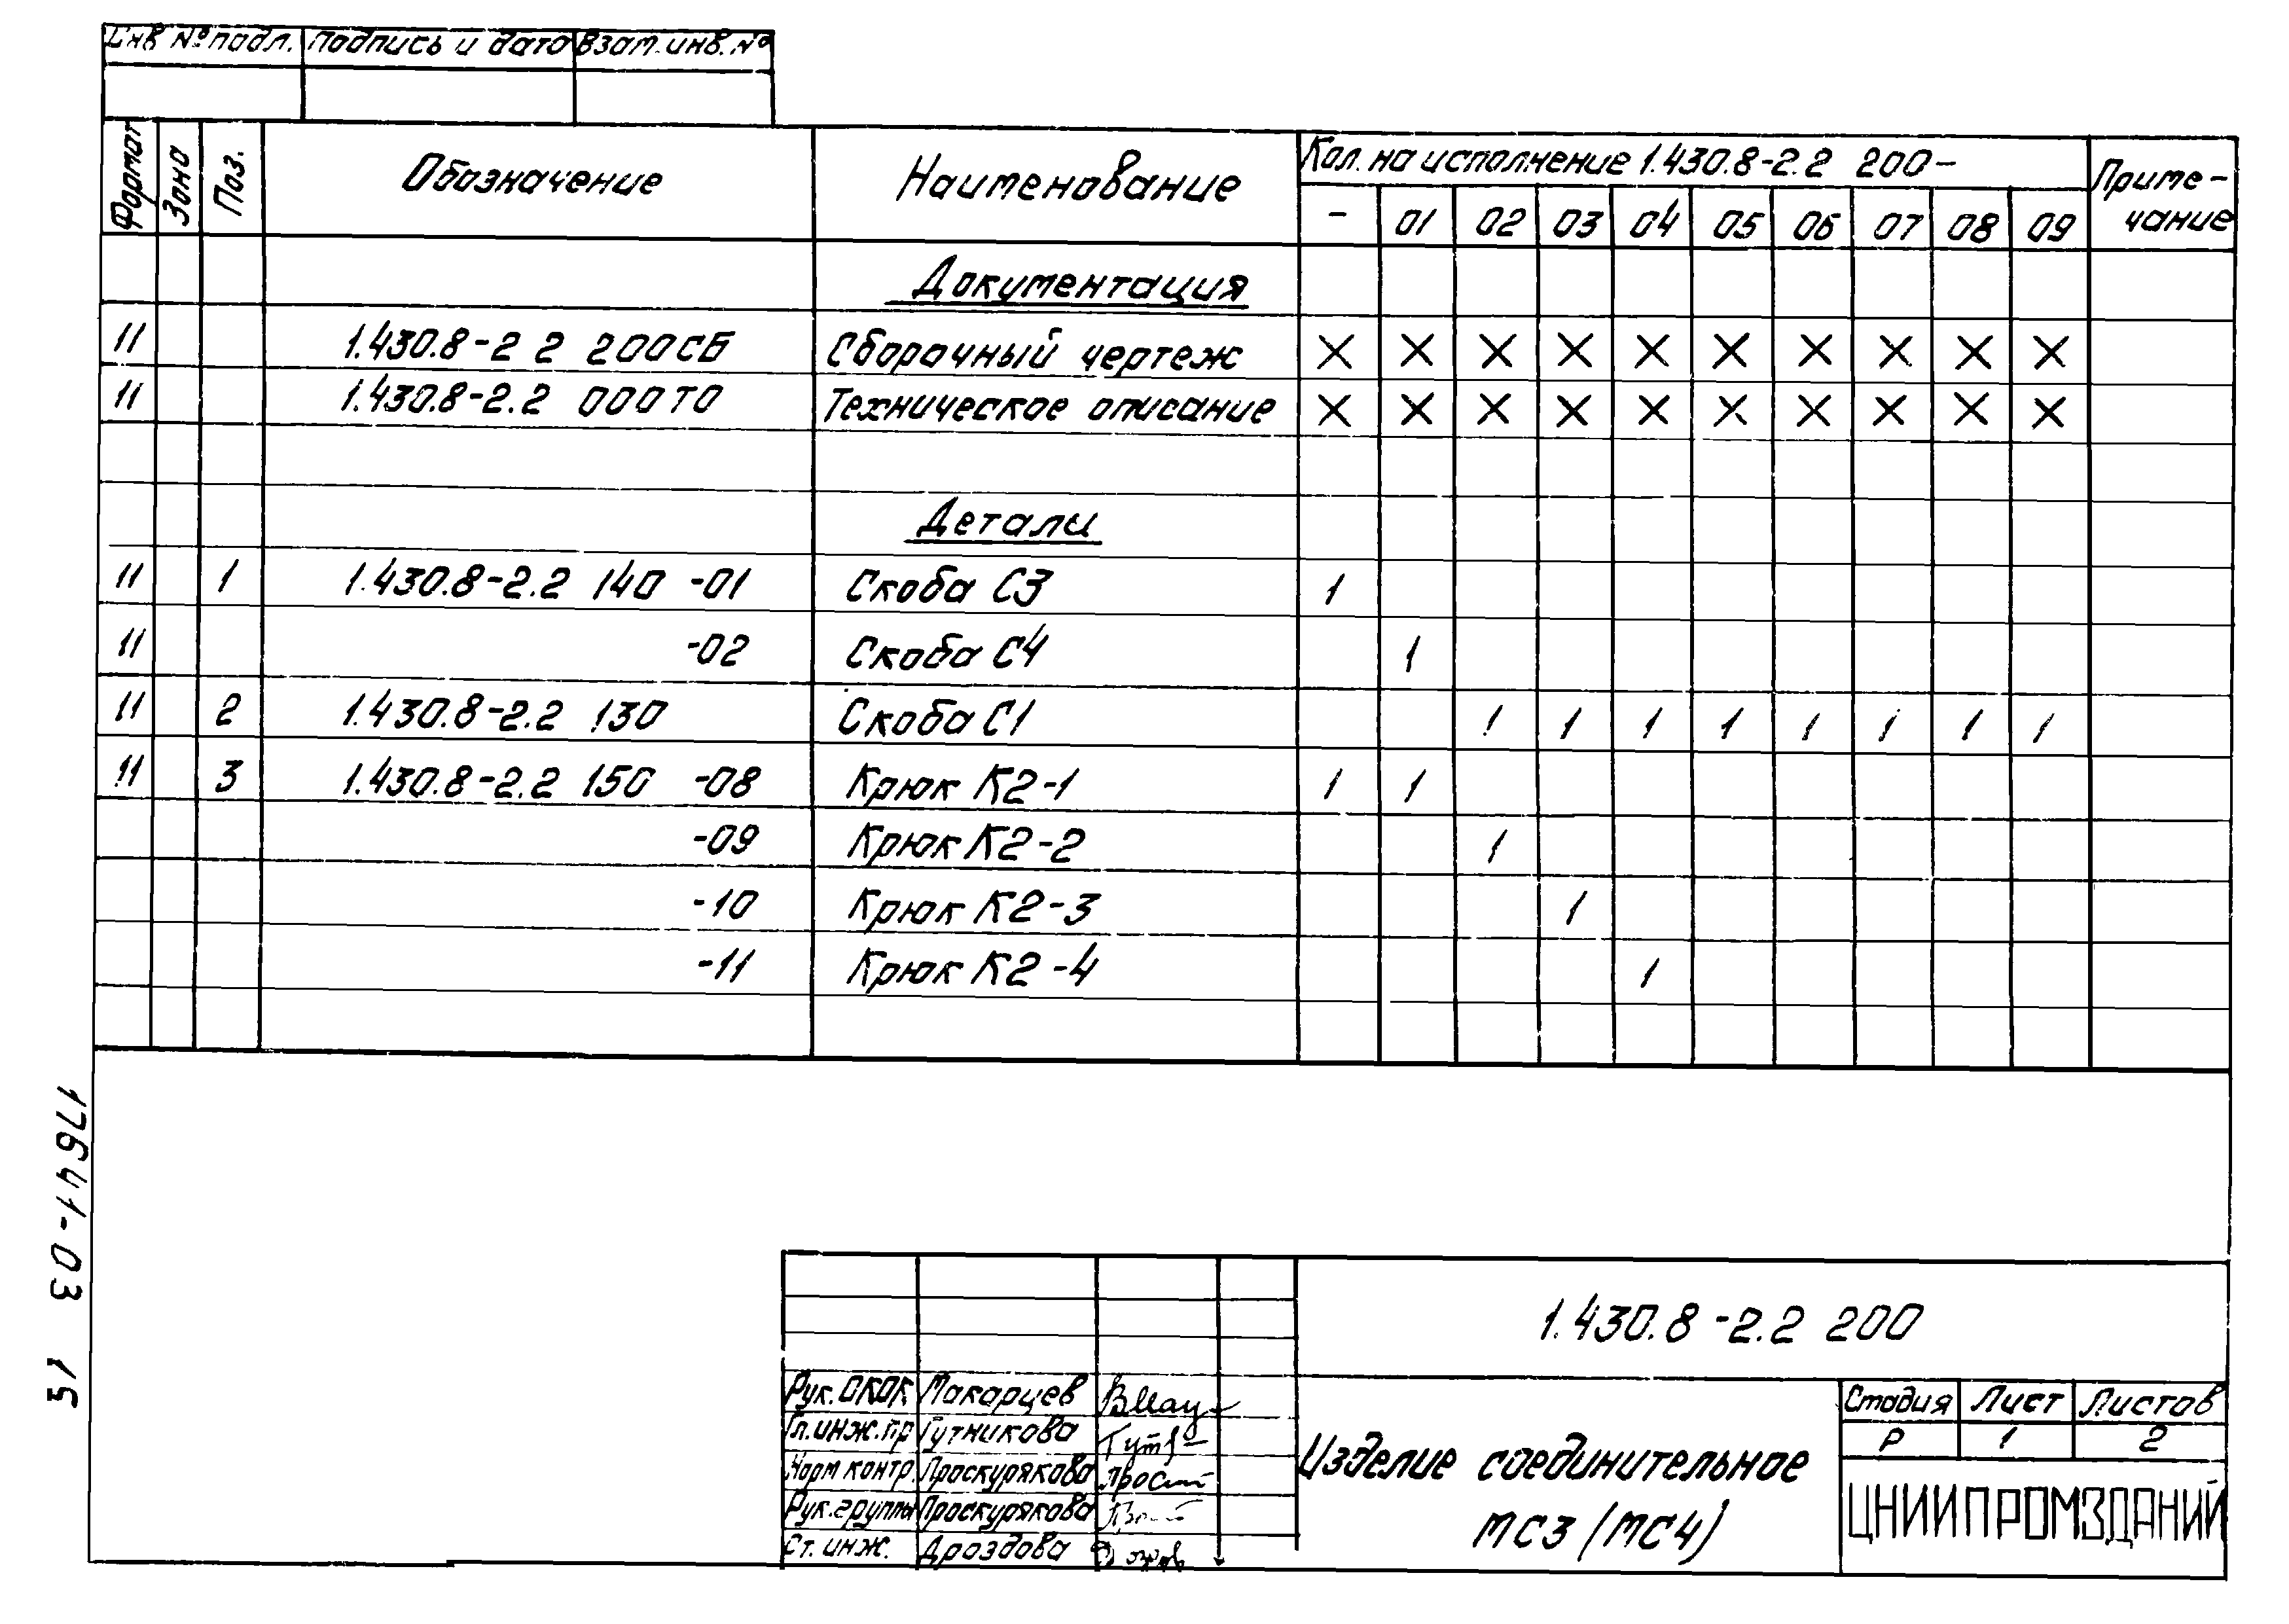 Инв № подл. Подпись и дата Взам. инв. №
Формат Зона Поз. Обозначение Наименование Кол. на исполнение 1.430.8-2.2 200- Приме-
чание
- 01 02 03 04 05 06 07 08 09
Документация
11 1.430.8-2 2 200СБ Сборочный чертеж X X X X X X X X X X
11 1.430.8-2.2 000ТО Техническое описание X X X X X X X X X X
Детали
11 1 1.430.8-2.2 140 -01 Скоба С3 1
11 -02 Скоба С4 1
11 2 1.430.8-2.2 130 Скоба С1 1 1 1 1 1 1 1 1
11 3 1.430.8-2.2 150 -08 Крюк К2-1 1 1
-09 Крюк К2-2 1
-10 Крюк К2-3 1
-11 Крюк К2-4 1
17641-03 15
1.430.8-2.2 200
Рук. ОКОК Макарцев
Гл. инж. пр Гутникова
Норм контр. Проскурякова
Рук. группы Проскурякова
Ст. инж. Дроздова
Изделие соединительное
МС3 (МС4)
Стадия Лист Листов
Р 1 2
ЦНИИПРОМЗДАНИЙ